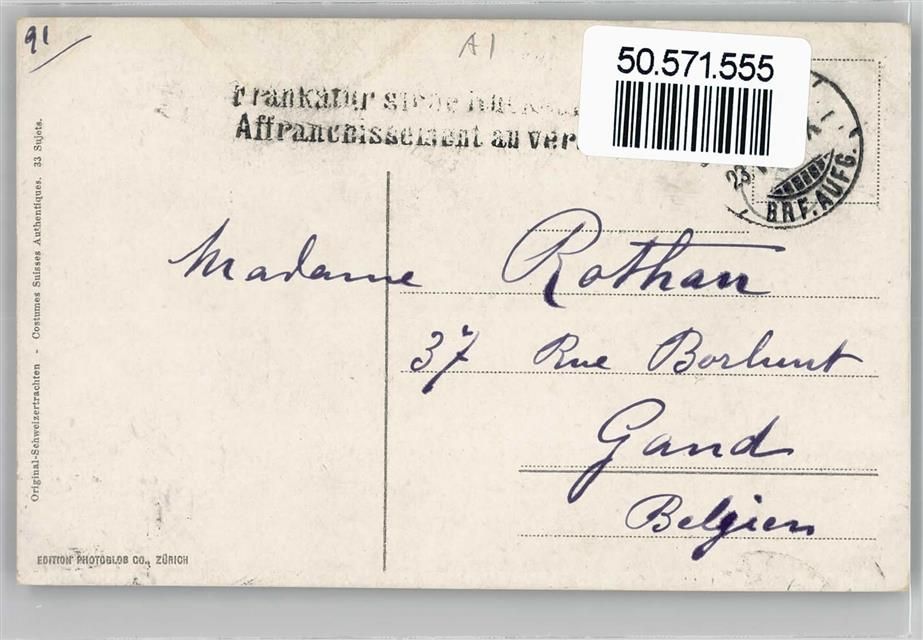 91
A1
50.571.555
Frankatur siehe Rück
Affranchissement au ver
23
BRF. AUFG.
Madame Rothan
37 Rue Borlunt
Gand
Belgien
Original-Schweizertrachten - Costumes Suisses Authentiques. 33 Sujets.
EDITION PHOTOGLOB CO., ZÜRICH